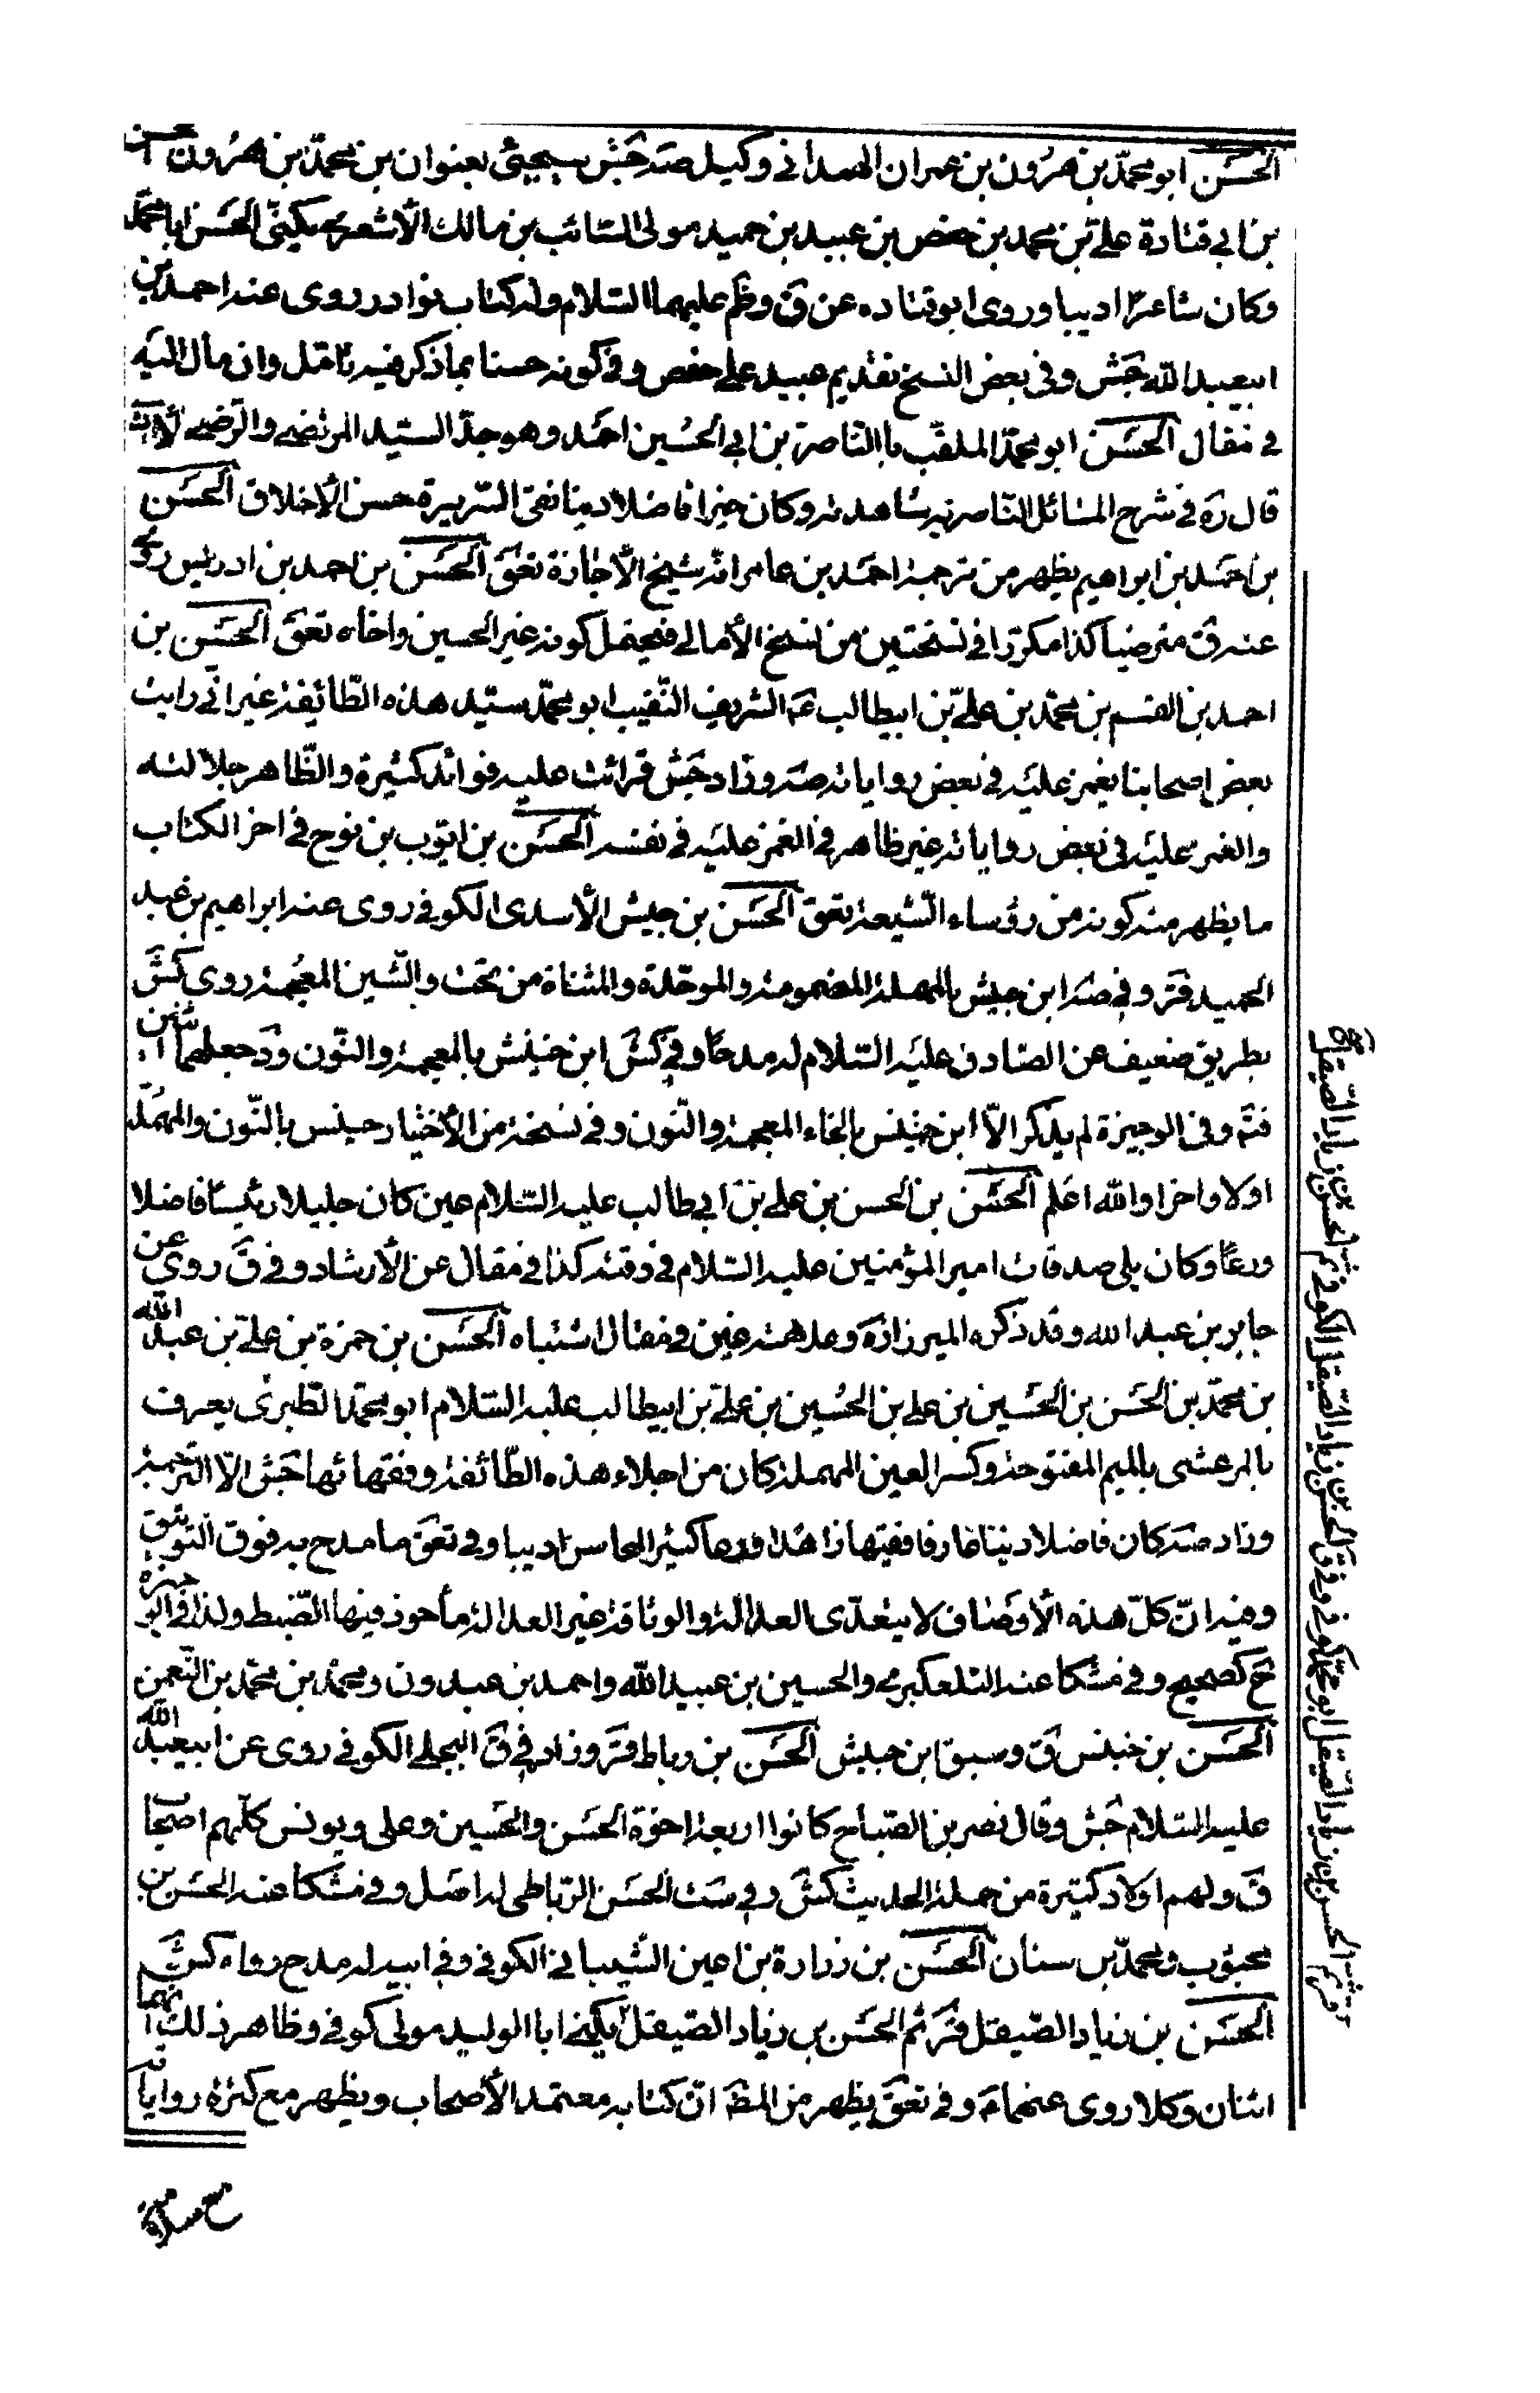 الحسن ابو محمد بن هرون بن عمران الهمداني وكيل صه جش سيجيئ بعنوان بن محمد بن هرون الحسن
بن ابي قتادة علي بن محمد بن حفص بن عبيد بن حميد مولى السائب بن مالك الأشعري يكنى الحسن ابا محمد
وكان شاعرا اديبا وروى ابو قتاده عن ق وظم عليهما السلام وله كتاب نوادر روى عنه احمد بن
ابيعبد الله جش وفى بعض النسخ تقديم عبيد على حفص وفي كونه حسنا بما ذكر فيه تامل وان مال اليه
في مقال الحسن ابو محمد الملقب باالناصر بن ابي الحسين احمد وهو جد السيد المرتضى والرضى لامه
قال ره في شرح المسائل الناصريه شاهدته وكان خيرا فاضلا دينا نقى السريرة حسن الأخلاق الحسن
بن احمد بن ابراهيم يظهر من ترجمة احمد بن عامر انه شيخ الأجازة تعق الحسن بن احمد بن ادريس روى
عنه ق مترضيا كذا مكررا في نسختين من نسخ الأمالي فيحتمل كونه غير الحسين واخاه تعق الحسن بن
احمد بن القسم بن محمد بن علي بن ابيطالب عم الشريف النقيب ابو محمد سيد هذه الطائفة غير اني رايت
بعض اصحابنا يغمز عليه في بعض رواياته صه وزاد جش قرائت عليه فوائد كثيرة والظاهر جلالته
والغمز عليه فى بعض رواياته غير ظاهر في الغمز عليه في نفسه الحسن بن ايوب بن نوح في اخر الكتاب
ما يظهر منه كونه من رؤساء الشيعة تعق الحسن بن حبيش الأسدى الكوفي روى عنه ابراهيم بن عبد
الحميد قر وفي صه ابن حبيش بالمهملة المضمومة والموحدة والمثناة من تحت والشين المعجمة روى كش
بطريق ضعيف عن الصادق عليه السلام له مدحا وفي كش ابن خنيش بالمعجمة والنون ود جعلهما اثنين
فتم وفى الوجيزة لم يذكر الا ابن خنيس بالخاء المعجمة والنون وفي نسخة من الأختيار حبنس بالنون والمهملة
اولا واخرا والله اعلم الحسن بن الحسن بن علي بن ابي طالب عليه السلام عين كان جليلا رئيسا فاضلا
ورعا وكان يلي صدقات امير المؤمنين عليه السلام في وقته كذا في مقال عن الأرشاد وفي ق روى عن
جابر بن عبد الله وقد ذكره الميرزا ره وعدهمه غين وفمقال اشتباه الحسن بن حمزة بن علي بن عبد الله
بن محمد بن الحسن بن الحسين بن علي بن الحسين بن علي بن ابيطالب عليه السلام ابو محمد الطبرى يعرف
بالمرعشى بالميم المفتوحة وكسر العين المهملة كان من اجلاء هذه الطائفة وفقهائها جش الا الترجمة
وزاد صه كان فاضلا دينا عارفا فقيها زاهدا ورعا كثير المحاسن اديبا وفي تعق ما مدح به فوق التوثيق
وفيه ان كل هذه الأوصاف لا يتعدى العدالة والوثاقة غير العدالة مأخوذ فيها الضبط ولذا في الوجيزه
ح كصحيح وفي مشكا عنه التلعكبرى والحسين بن عبيد الله واحمد بن عبدون ومحمد بن محمد بن النعمن
الحسن بن خنبس ق وسبق ابن حبيش الحسن بن رباط قر وزاد في ق البجلي الكوفي روى عن ابيعبد الله
عليه السلام جش وقال نصر بن الصباح كانوا اربعة اخوة الحسن والحسين وعلى ويونس كلهم اصحاب
ق ولهم اولاد كثيرة من حملة الحديث كش وفي ست الحسن الرباطى له اصل وفي مشكا عنه الحسن بن
محبوب ومحمد بن سنان الحسن بن زرارة بن اعين الشيباني الكوفي وفي ابيه له مدح رواه كش
الحسن بن زياد الصيقل قر ثم الحسن بن زياد الصيقل يكنى ابا الوليد مولى كوفي وظاهر ذلك انهما
اثنان وكلا روى عنهما م وفي تعق يظهر من المظ ان كتابه معتمد الأصحاب ويظهر مع كثرة رواياته
الحسن بن زياد الصيقل ابو محمد كوفي وفي ق الحسن بن زياد الصيقل الكوفي ثم الحسن بن زياد الصيقل